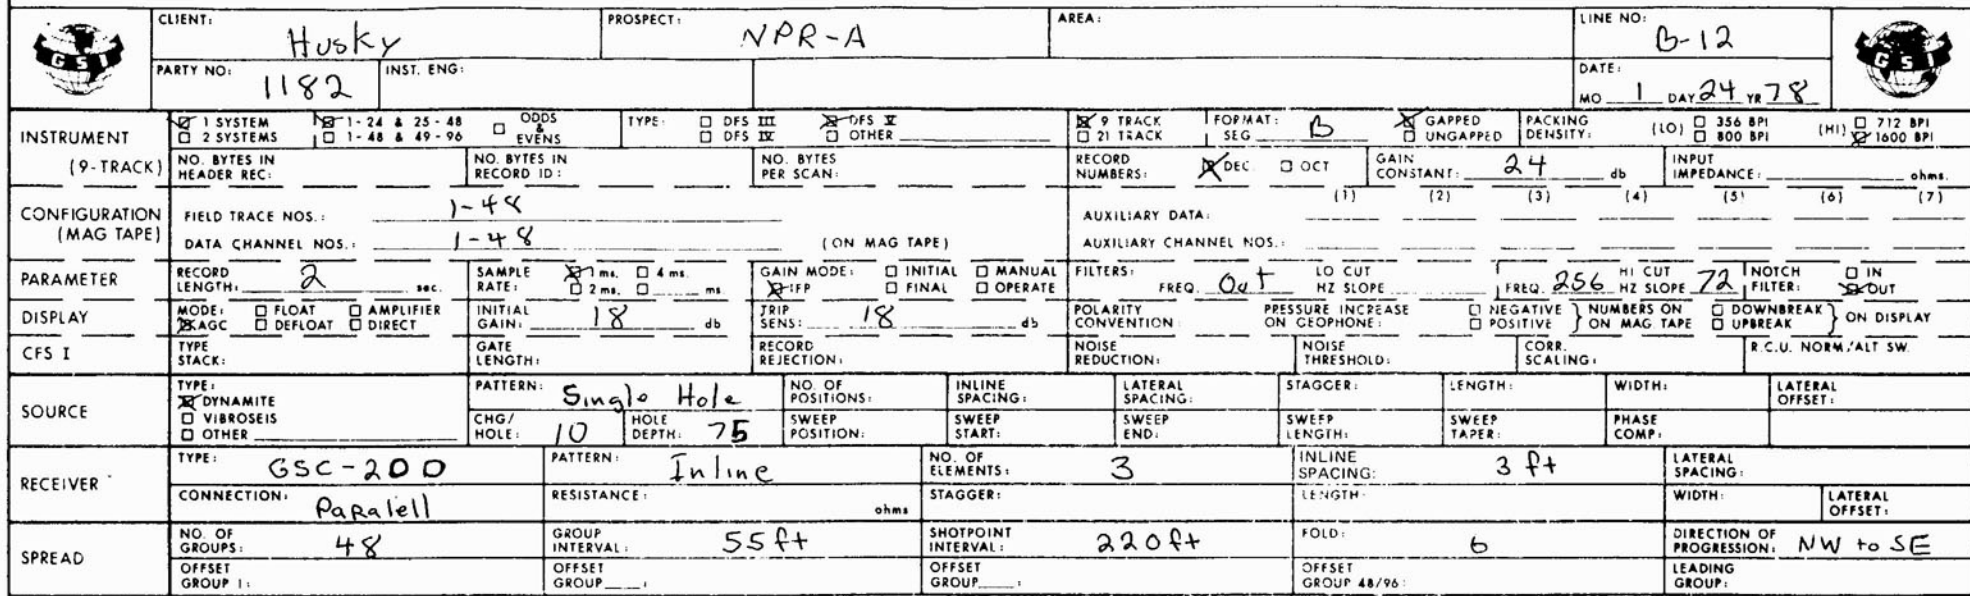 CLIENT: Husky PROSPECT: NPR-A AREA: LINE NO: B-12
GSI GSI
PARTY NO: 1182 INST. ENG: DATE: MO 1 DAY 24 YR 78
INSTRUMENT (9-TRACK)
☒ 1 SYSTEM ☒ 1-24 & 25-48 ☐ ODDS & EVENS TYPE: ☐ DFS III ☒ DFS V ☒ 9 TRACK FORMAT: SEG B ☒ GAPPED PACKING DENSITY: (LO) ☐ 356 BPI (HI) ☐ 712 BPI
☐ 2 SYSTEMS ☐ 1-48 & 49-96 ☐ DFS IV ☐ OTHER ☐ 21 TRACK ☐ UNGAPPED ☐ 800 BPI ☒ 1600 BPI
NO. BYTES IN HEADER REC: NO. BYTES IN RECORD ID: NO. BYTES PER SCAN: RECORD NUMBERS: ☒ DEC ☐ OCT GAIN CONSTANT: 24 db INPUT IMPEDANCE: ohms.
CONFIGURATION (MAG TAPE)
(1) (2) (3) (4) (5) (6) (7)
FIELD TRACE NOS.: 1-48 AUXILIARY DATA:
DATA CHANNEL NOS.: 1-48 (ON MAG TAPE) AUXILIARY CHANNEL NOS.:
PARAMETER
RECORD LENGTH: 2 sec. SAMPLE RATE: ☒ 1 ms. ☐ 4 ms. ☐ 2 ms. ☐ ms. GAIN MODE: ☐ INITIAL ☐ MANUAL ☒ IFP ☐ FINAL ☐ OPERATE FILTERS: FREQ. Out LO CUT HZ SLOPE FREQ. 256 HI CUT HZ SLOPE 72 NOTCH FILTER: ☐ IN ☒ OUT
DISPLAY
MODE: ☐ FLOAT ☐ AMPLIFIER ☒ AGC ☐ DEFLOAT ☐ DIRECT INITIAL GAIN: 18 db TRIP SENS: 18 db POLARITY CONVENTION PRESSURE INCREASE ON GEOPHONE: ☐ NEGATIVE ☐ POSITIVE } NUMBERS ON MAG TAPE ☐ DOWNBREAK ☐ UPBREAK } ON DISPLAY
CFS I
TYPE STACK: GATE LENGTH: RECORD REJECTION: NOISE REDUCTION: NOISE THRESHOLD: CORR. SCALING: R.C.U. NORM./ALT SW.
SOURCE
TYPE: ☒ DYNAMITE ☐ VIBROSEIS ☐ OTHER
PATTERN: Single Hole NO. OF POSITIONS: INLINE SPACING: LATERAL SPACING: STAGGER: LENGTH: WIDTH: LATERAL OFFSET:
CHG/HOLE: 10 HOLE DEPTH: 75 SWEEP POSITION: SWEEP START: SWEEP END: SWEEP LENGTH: SWEEP TAPER: PHASE COMP:
RECEIVER
TYPE: GSC-20D PATTERN: Inline NO. OF ELEMENTS: 3 INLINE SPACING: 3 ft LATERAL SPACING:
CONNECTION: Paralell RESISTANCE: ohms STAGGER: LENGTH: WIDTH: LATERAL OFFSET:
SPREAD
NO. OF GROUPS: 48 GROUP INTERVAL: 55 ft SHOTPOINT INTERVAL: 220 ft FOLD: 6 DIRECTION OF PROGRESSION: NW to SE
OFFSET GROUP 1: OFFSET GROUP : OFFSET GROUP : OFFSET GROUP 48/96: LEADING GROUP: